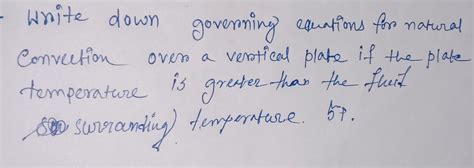 - Write down governing equations for natural
Convection over a vertical plate if the plate
temperature is greater than the fluid
surranding) temperature. 57.